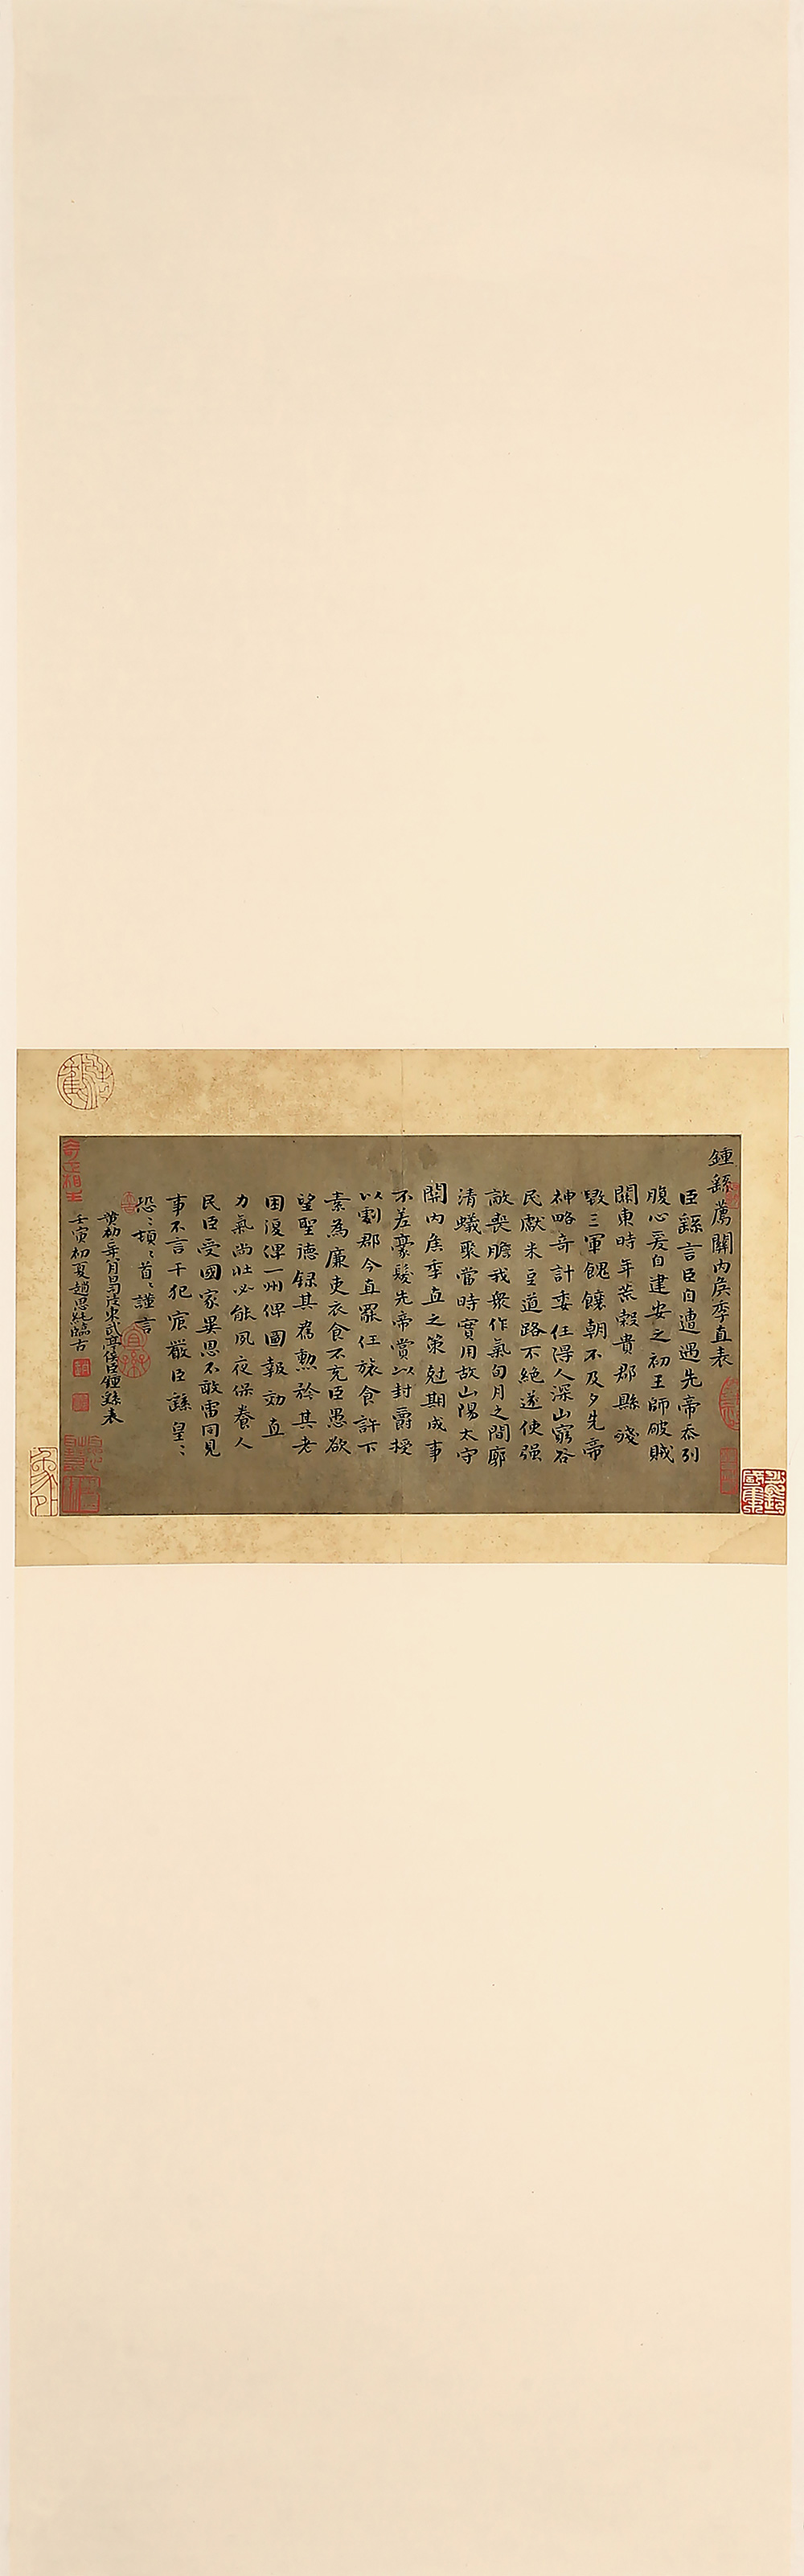 鍾繇薦關內侯季直表
臣繇言臣自遭遇先帝忝列
腹心爰自建安之初王師破賊
關東時年荒穀貴郡縣殘
毀三軍餽饟朝不及夕先帝
神略奇計委任得人深山窮谷
民獻米豆道路不絕遂使强
敵喪膽我衆作氣旬月之間廓
清蟻聚當時實用故山陽太守
關內侯季直之策尅期成事
不差豪髮先帝賞以封爵授
以劇郡今直罷任旅食許下
素為廉吏衣食不充臣愚欲
望聖德録其舊勲矜其老
困復俾一州俾圖報効直
力氣尚壯必能夙夜保養人
民臣受國家異恩不敢雷同見
事不言干犯宸嚴臣繇皇〻
恐〻頓〻首〻謹言
黃初二年八月日司徒東武亭侯臣鍾繇表
壬寅初夏趙思 臨古